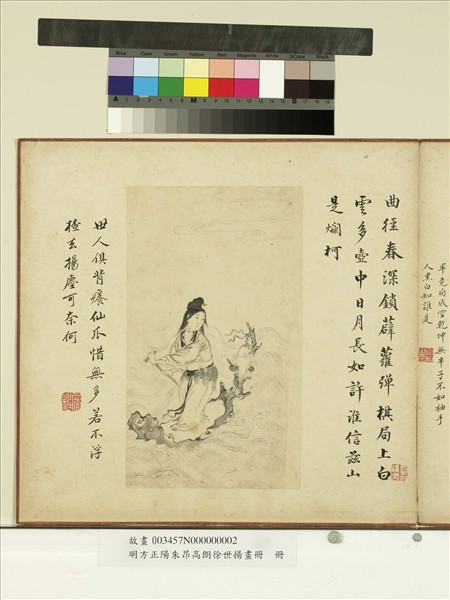 Blue Cyan Green Yellow Red Magenta White 3/Color Black
A 1 2 3 4 5 6 M 8 9 10 11 12 13 14 15 B 17 18 19
畢竟局成空乾坤無半子不如袖手
人黑白知誰是
曲徑春深鎖薜蘿彈棋局上白
雲多壺中日月長如許誰信茲山
是爛柯
世人俱背癢仙爪惜無多若不浮
槎去揚塵可奈何
故畫 003457N000000002
明方正陽朱昂高朗徐世揚畫冊 冊